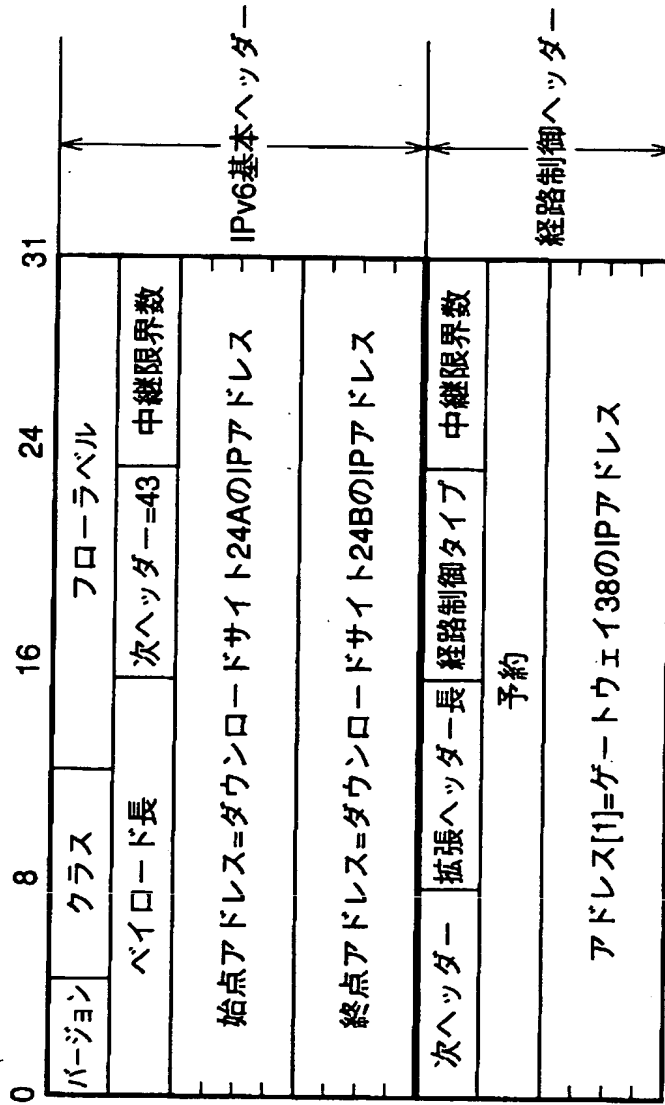 0 8 16 24 31
バージョン クラス フローラベル
ペイロード長 次ヘッダー=43 中継限界数
始点アドレス=ダウンロードサイト24AのIPアドレス
終点アドレス=ダウンロードサイト24BのIPアドレス
IPv6基本ヘッダー
次ヘッダー 拡張ヘッダー長 経路制御タイプ 中継限界数
予約
アドレス[1]=ゲートウェイ38のIPアドレス
経路制御ヘッダー